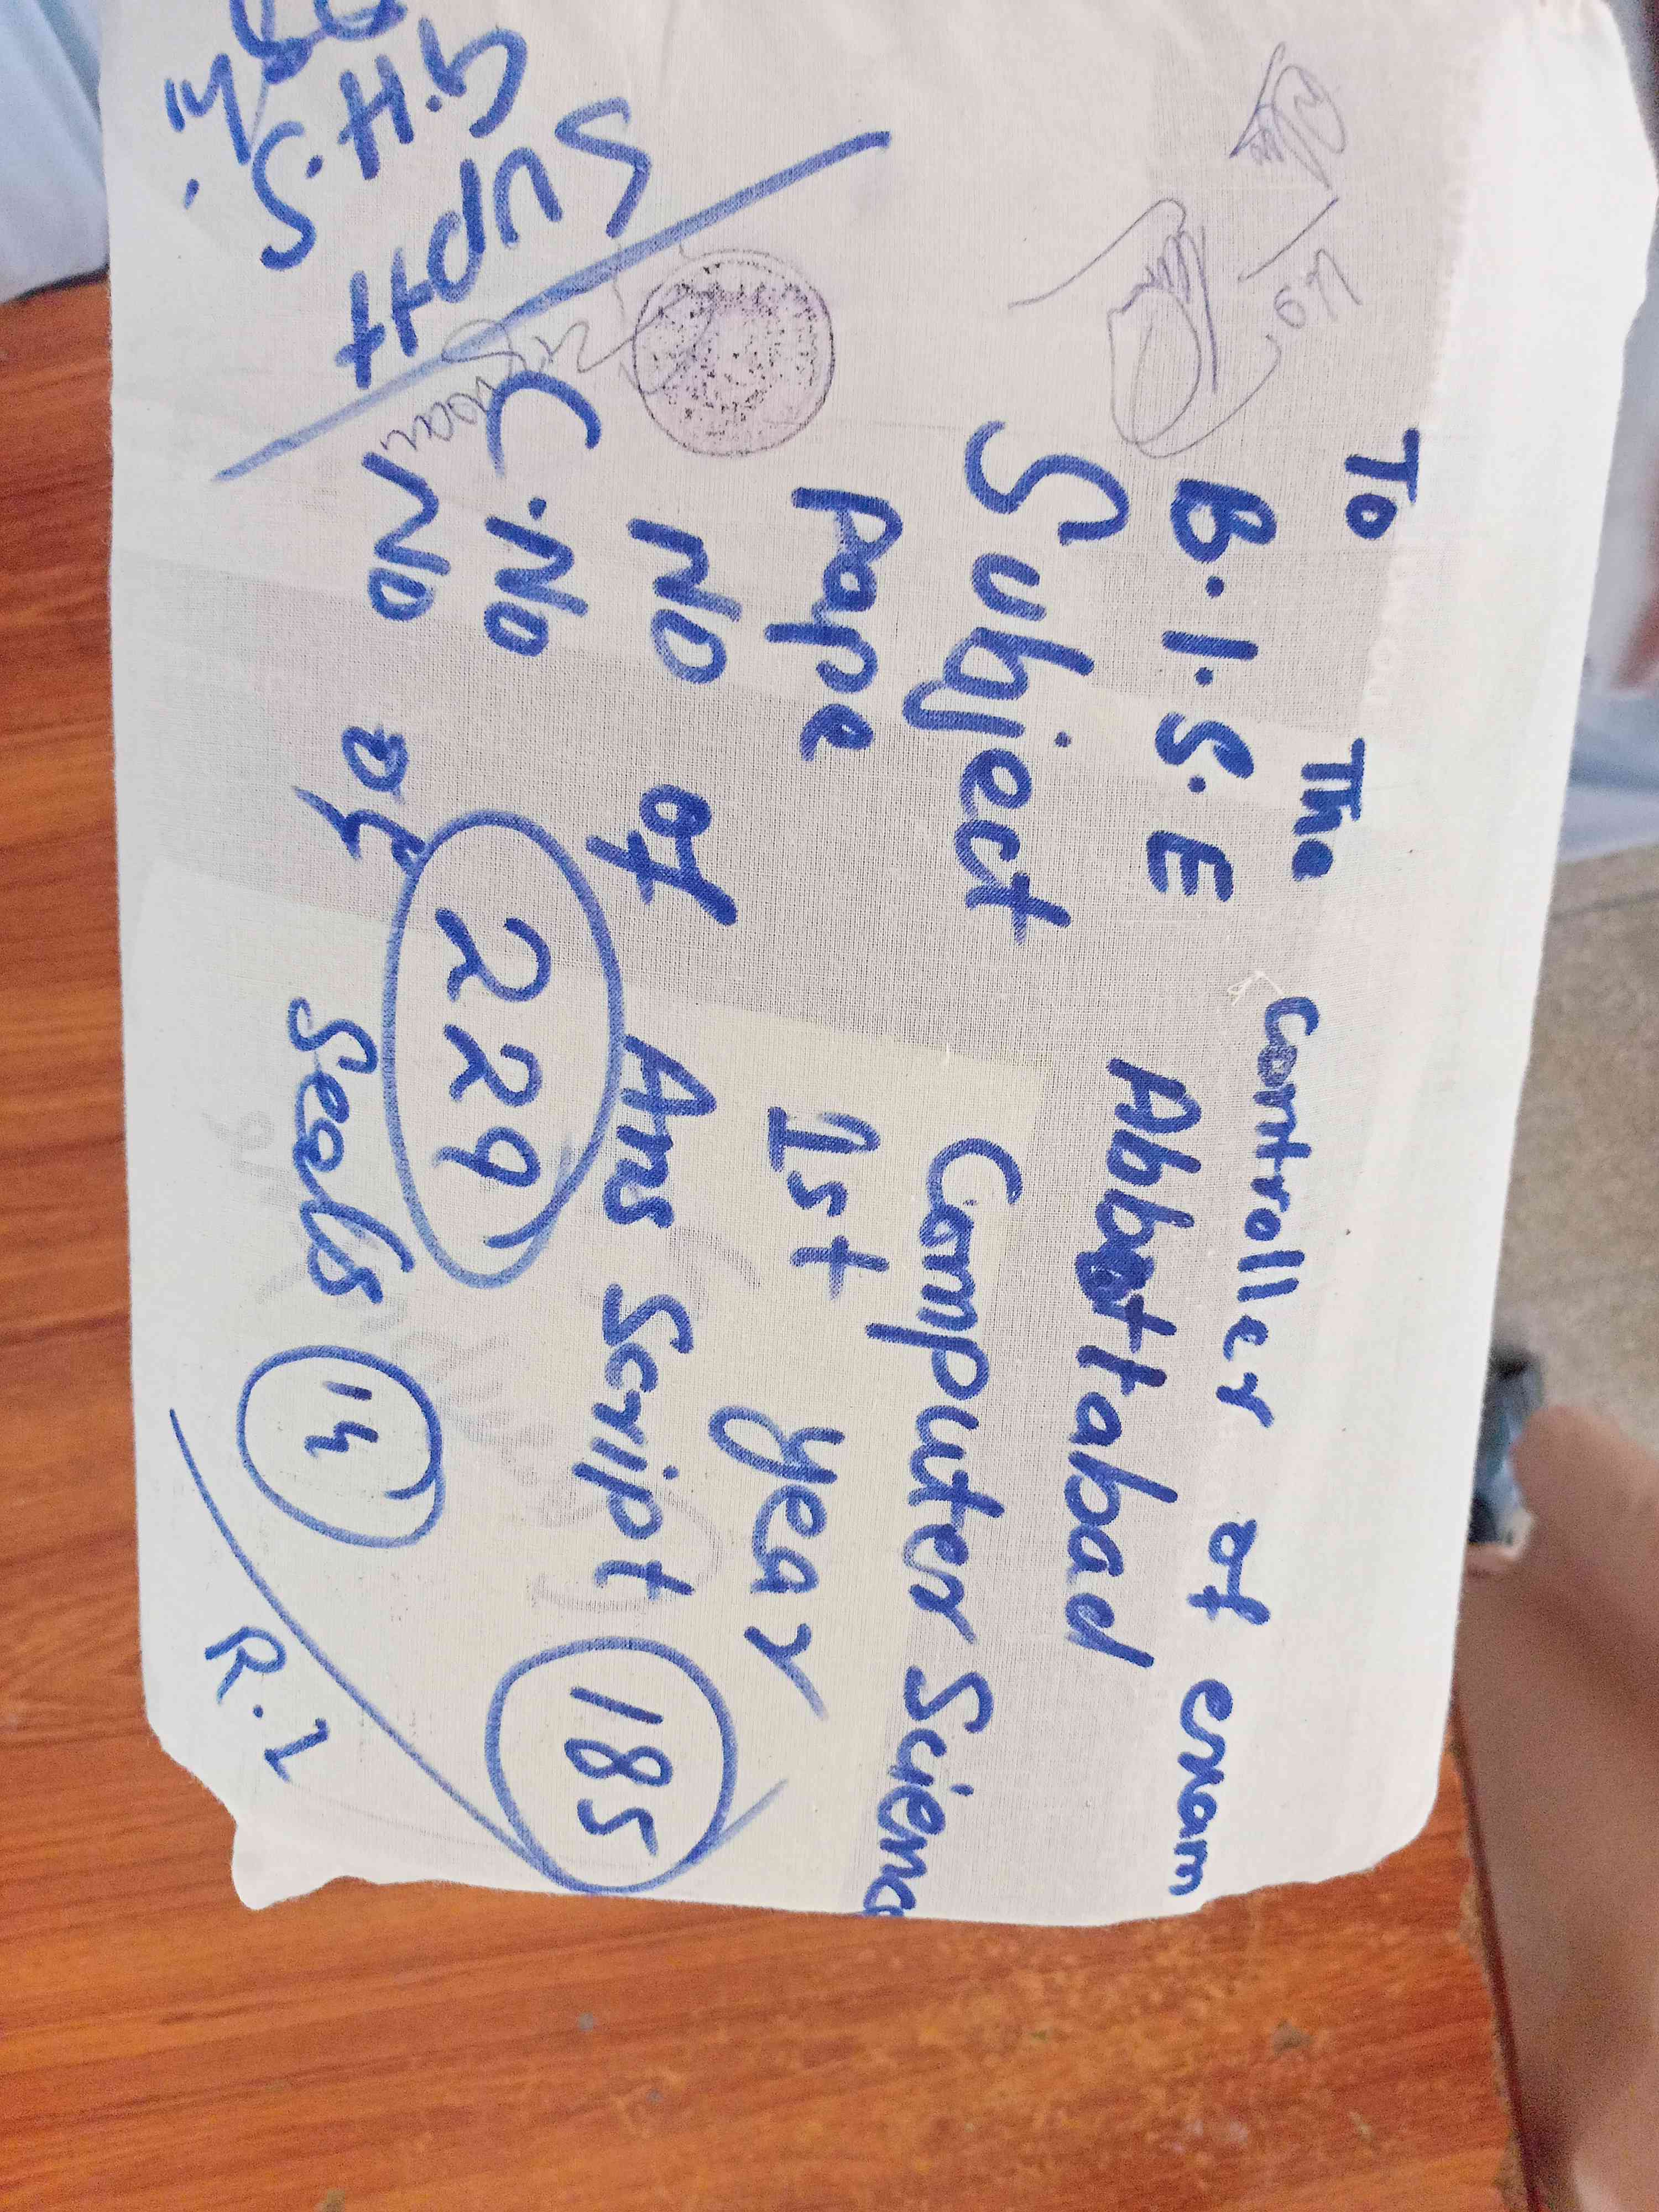 To The Controller of exam
B.I.S.E Abbottabad
Subject Computer Scienc
Pape 1st year
No of Ans Script 185
C.No 229
No of Seals 14
Supdtt
G.H.S
R.L